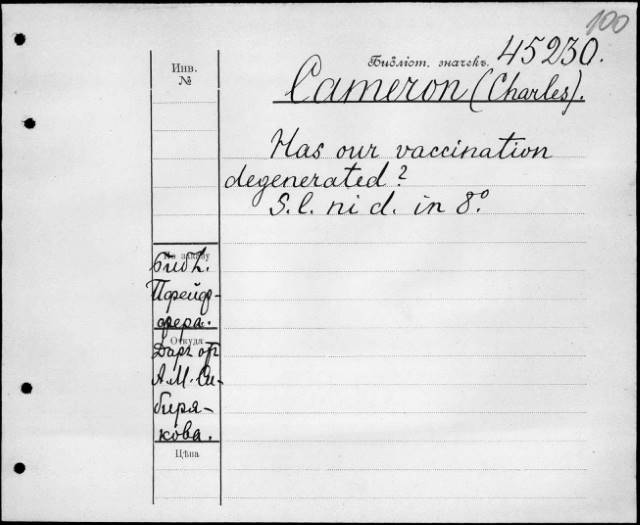 100
Инв.
№
Библіот. значекъ. 45230.
Cameron (Charles).
Has our vaccination
degenerated?
S. l. ni d. in 8º
По заказу
Библ.
Пфейф-
фера.
Откуда
Даръ
А. М. Си-
биря-
кова.
Цѣна